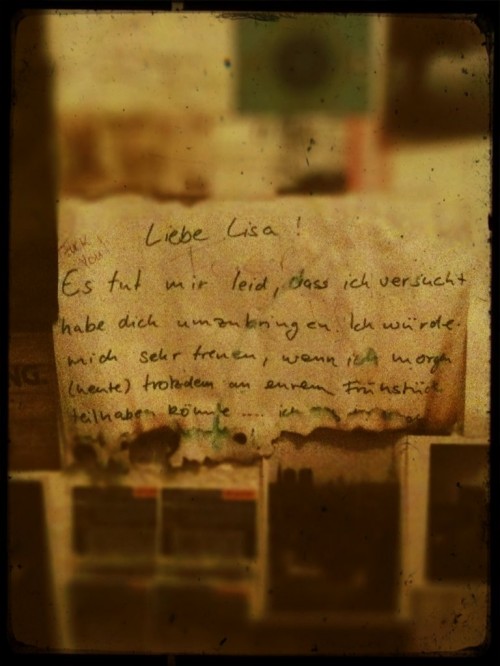 Liebe Lisa!
Fuck
You!
Es tut mir leid, dass ich versucht
habe dich umzubringen. Ich würde
mich sehr freuen, wenn ich morgen
(heute) trotzdem an eurem Frühstück
teilhaben könnte .... ich